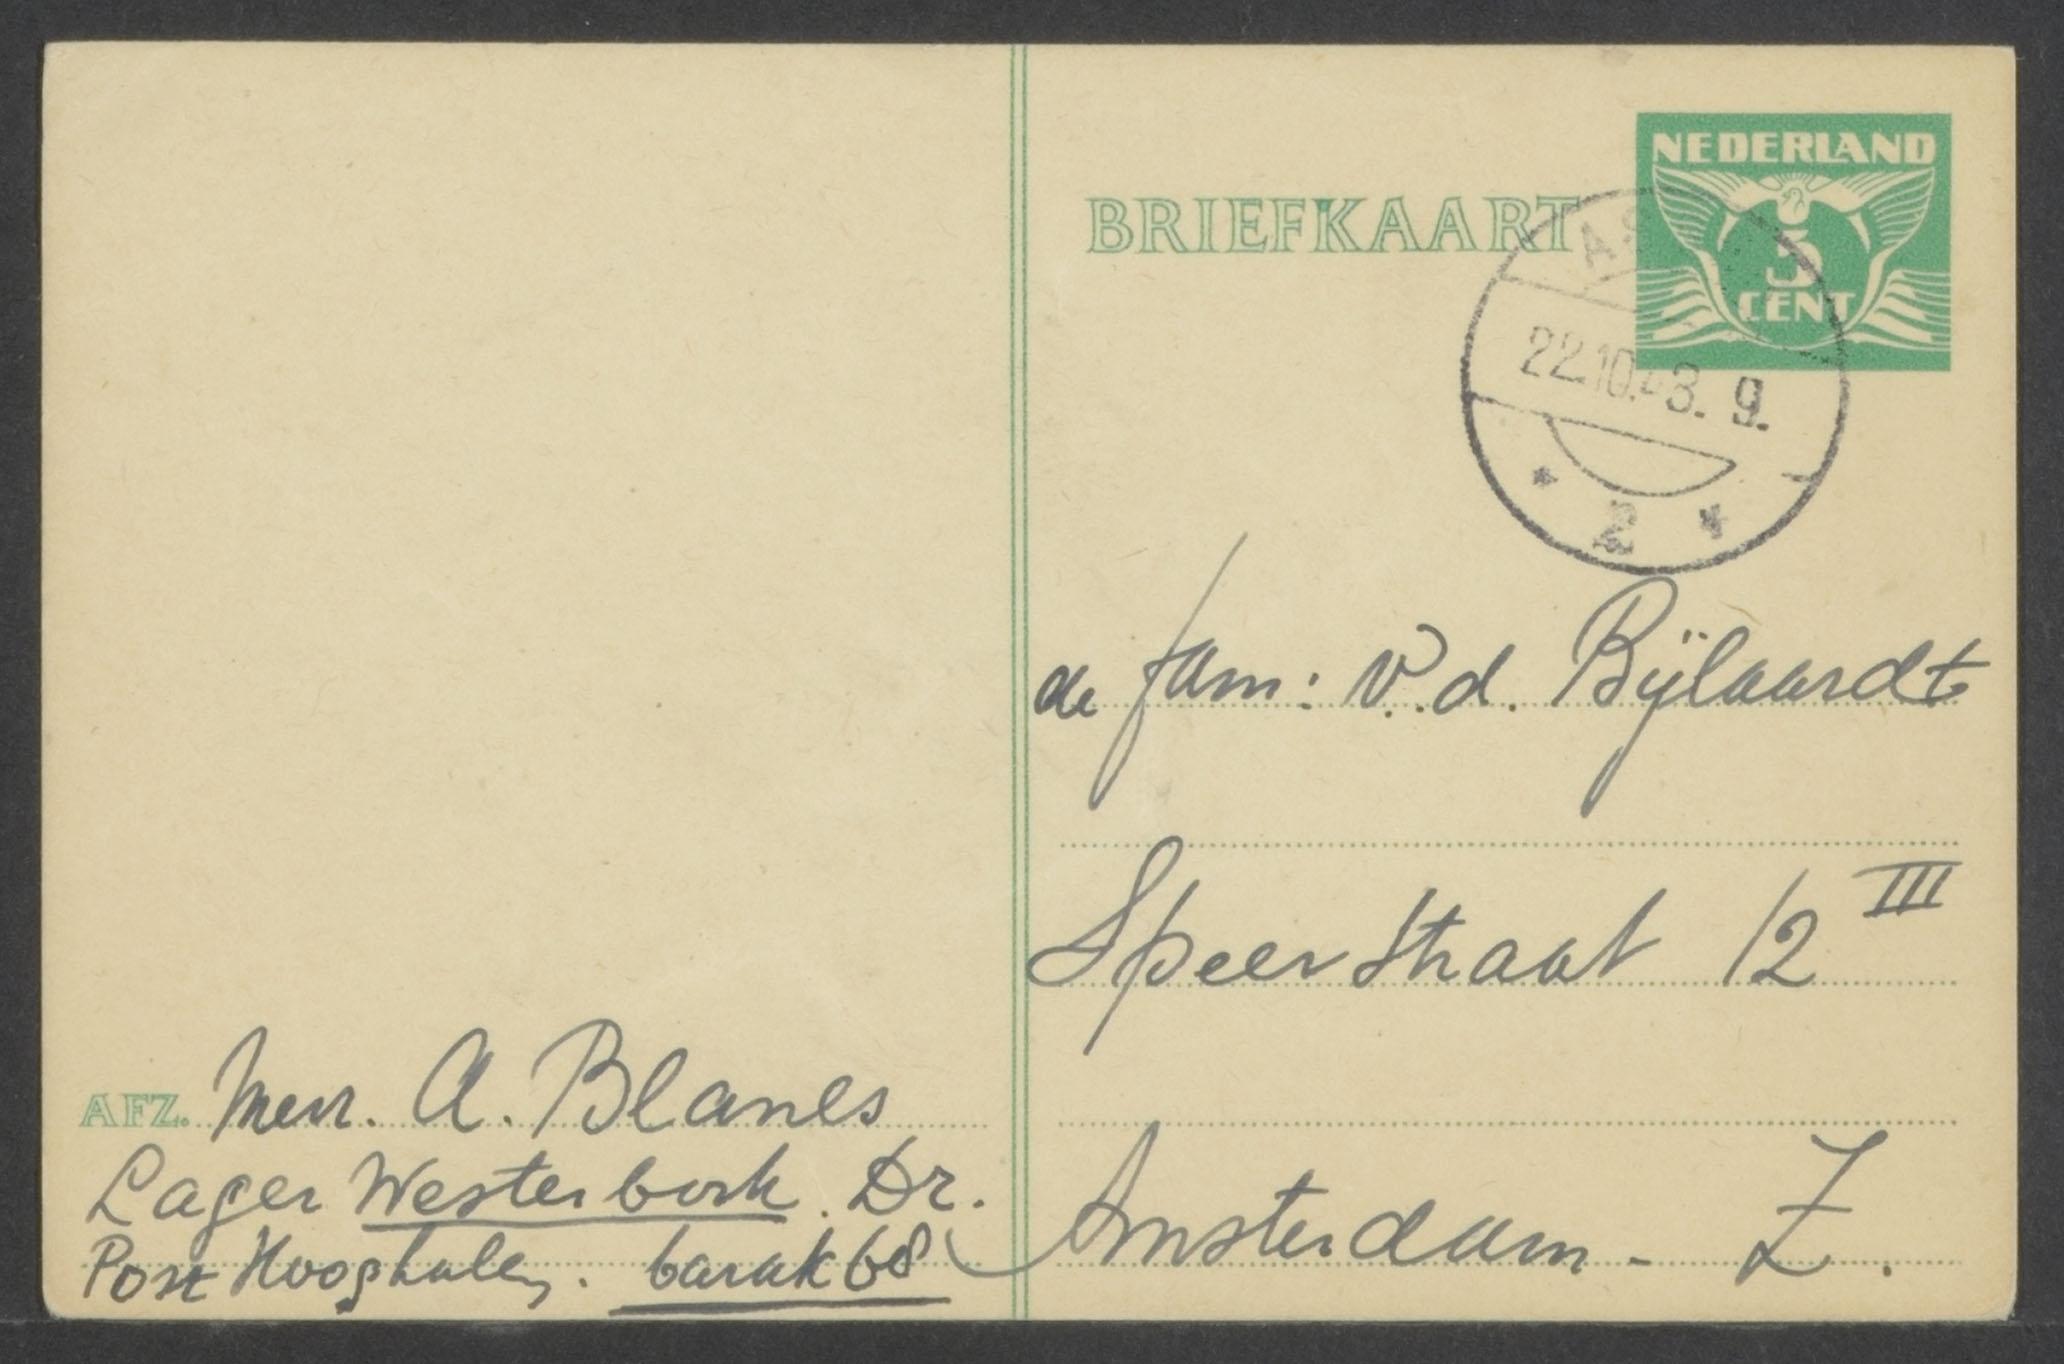 NEDERLAND
5
CENT
BRIEFKAART
22.10.43. 9.
* 2 *
de fam: v.d. Bÿlaardt
Speerstraat 12 III
Amsterdam - Z.
AFZ. Mevr. A. Blanes
Lager Westerbork. Dr.
Post Hooghalen. barak 68